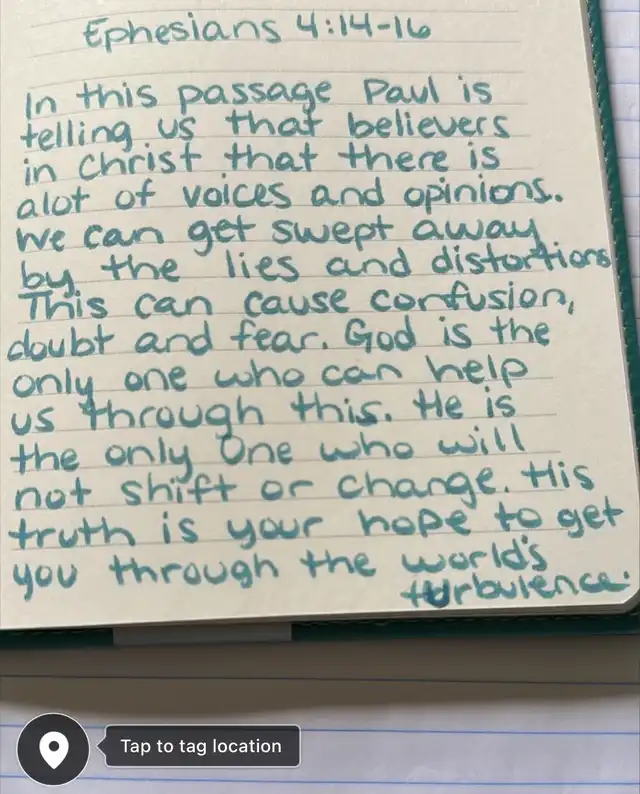 Ephesians 4:14-16
In this passage Paul is
telling us that believers
in Christ that there is
alot of voices and opinions.
We can get swept away
by the lies and distortions
This can cause confusion,
doubt and fear. God is the
only one who can help
us through this. He is
the only One who will
not shift or change. His
truth is your hope to get
you through the world's
turbulence.
Tap to tag location